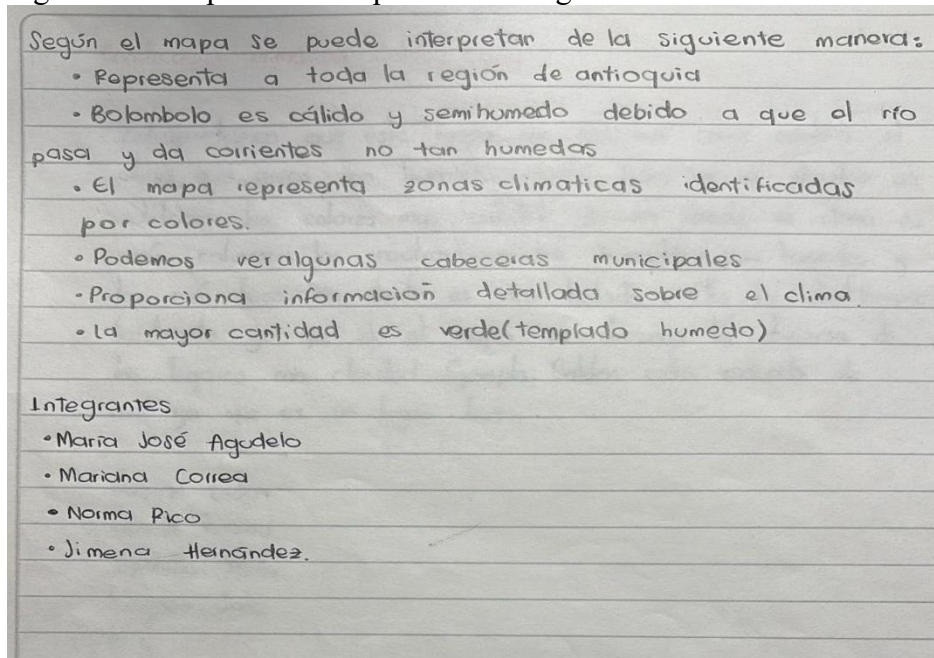 Según el mapa se puede interpretar de la siguiente manera:
• Representa a toda la región de antioquia
• Bolombolo es cálido y semihumedo debido a que el río
pasa y da corrientes no tan humedas
• El mapa representa zonas climaticas identificadas
por colores.
• Podemos ver algunas cabeceras municipales
• Proporciona información detallada sobre el clima.
• la mayor cantidad es verde(templado humedo)
Integrantes
• María José Agudelo
• Mariana Correa
• Norma Pico
• Jimena Hernández.